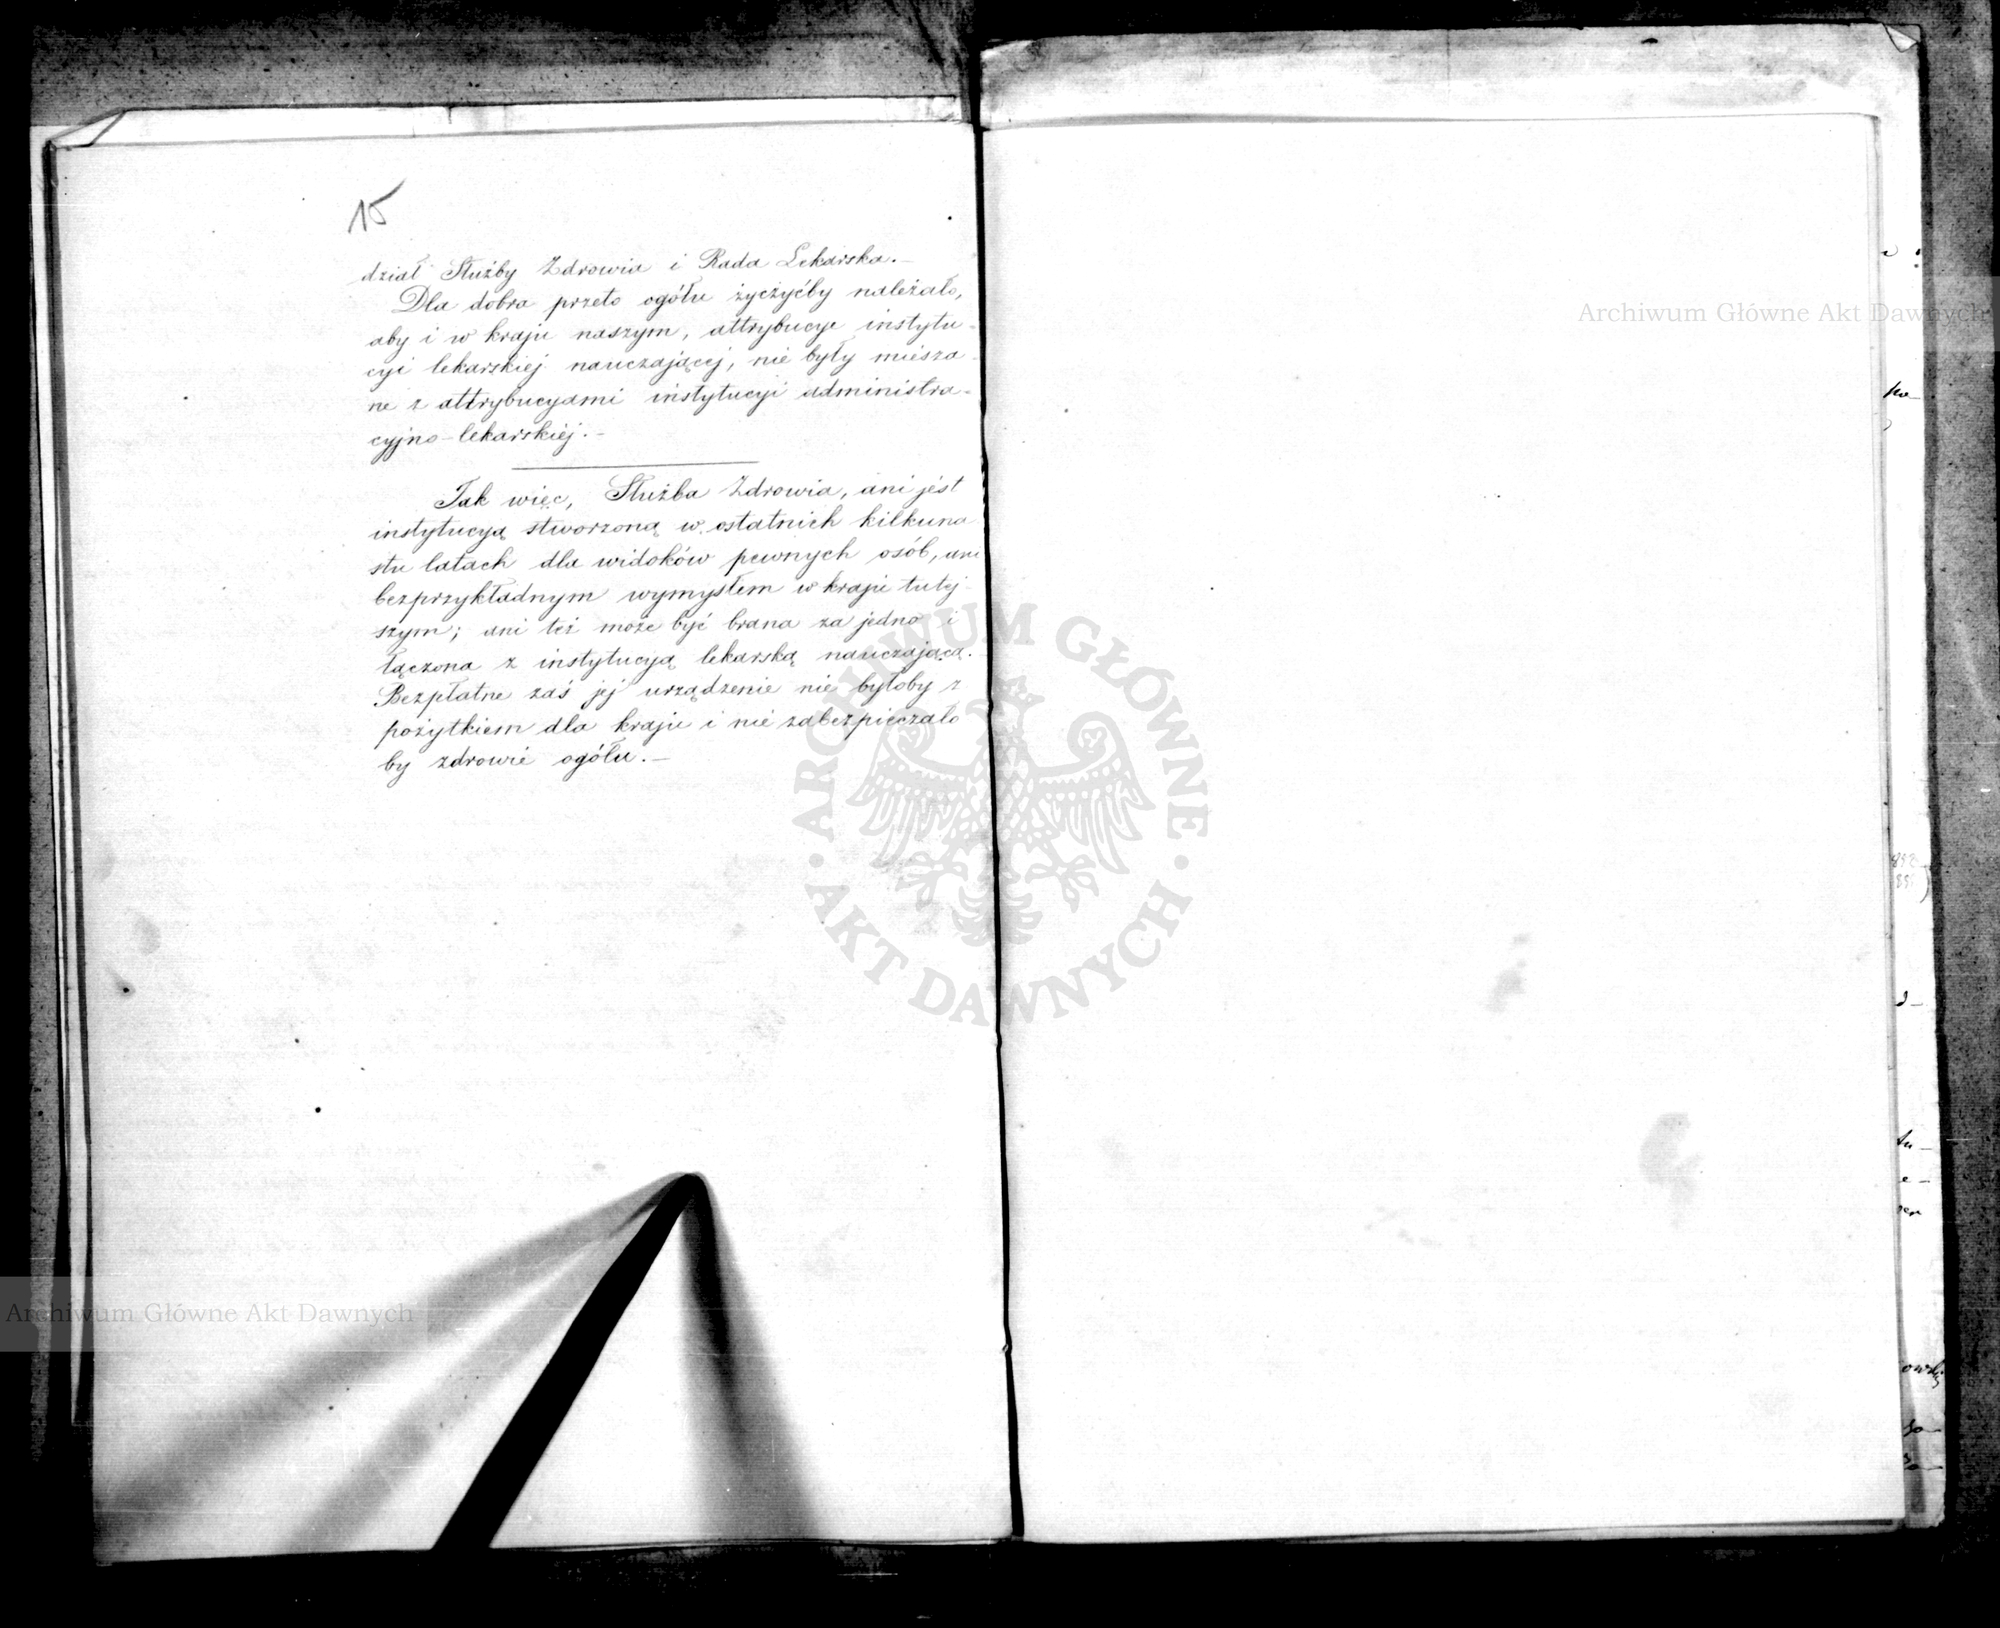 15
dział Służby Zdrowia i Rada Lekarska. —
Dla dobra przeto ogółu życzyćby należało,
aby i w kraju naszym, attrybucye instytu-
cyi lekarskiej nauczającej, nie były miesza-
ne z attrybucyami instytucyi administra-
cyjno-lekarskiej. —
Tak więc, Służba Zdrowia, ani jest
instytucyą stworzoną w ostatnich kilkuna
stu latach dla widoków pewnych osób, ani
bezprzykładnym wymysłem w kraju tutej-
szym; ani też może być brana za jedno i
łączona z instytucyą lekarską nauczającą.
Bezpłatne zaś jej urządzenie nie byłoby z
pożytkiem dla kraju i nie zabezpieczało
by zdrowie ogółu. —
Archiwum Główne Akt Dawnych
ARCHIWUM GŁÓWNE
AKT DAWNYCH
Archiwum Główne Akt Dawnych